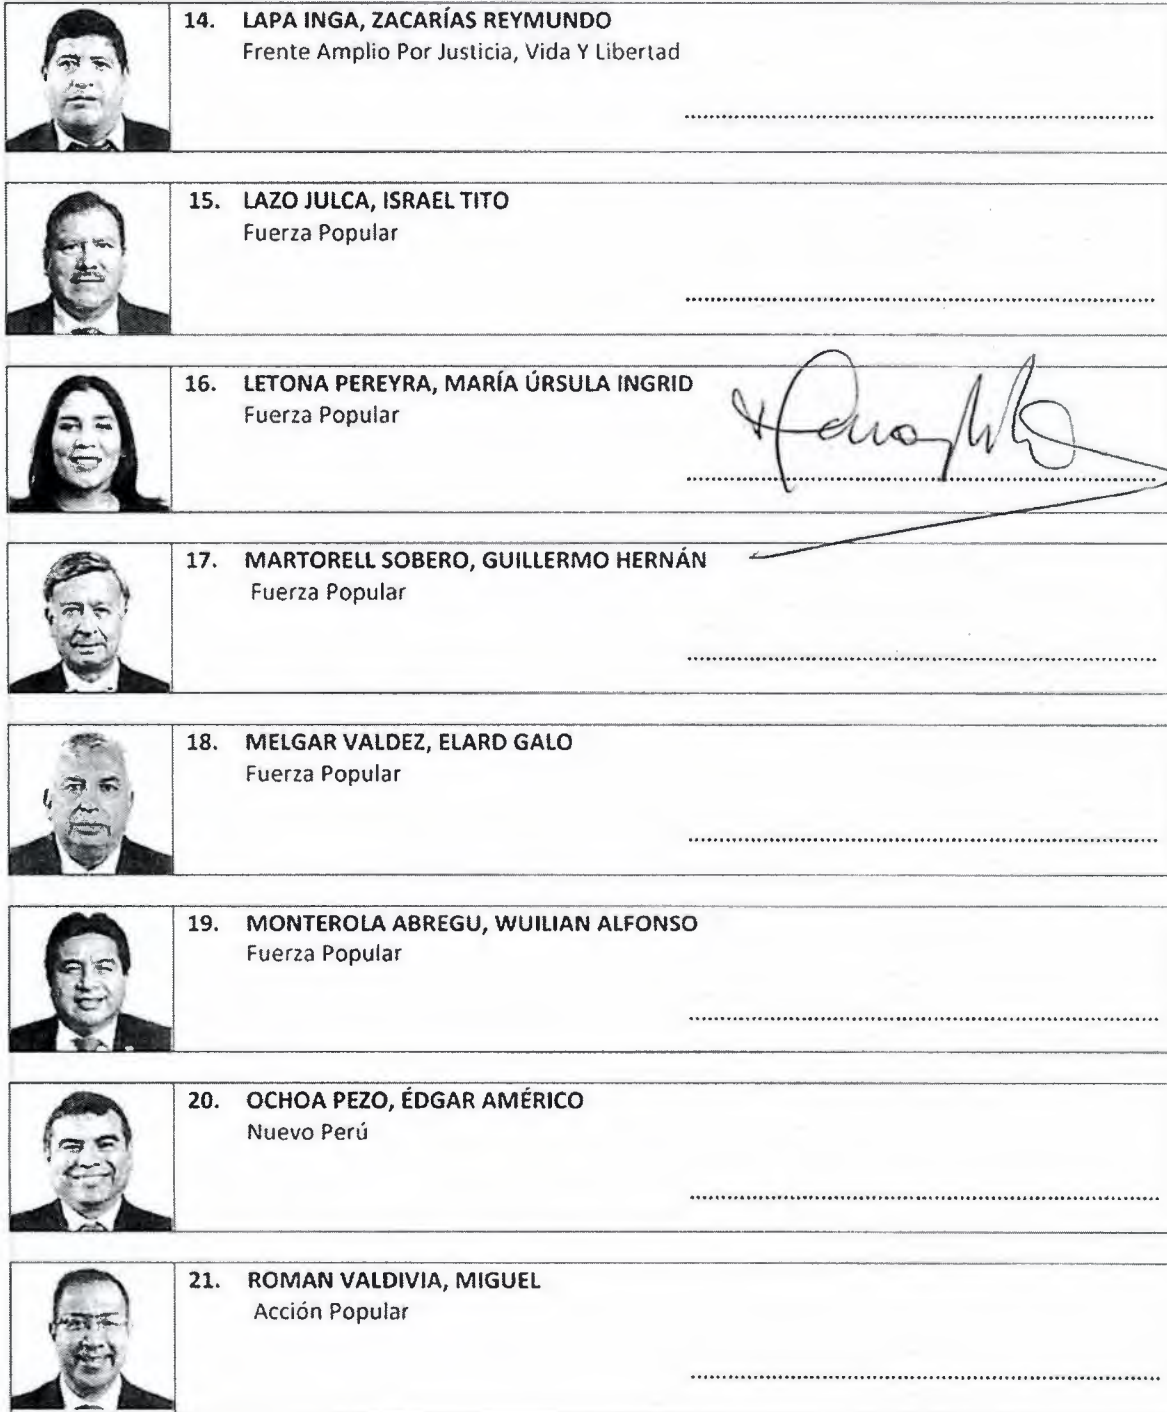 14. LAPA INGA, ZACARÍAS REYMUNDO
Frente Amplio Por Justicia, Vida Y Libertad
15. LAZO JULCA, ISRAEL TITO
Fuerza Popular
16. LETONA PEREYRA, MARÍA ÚRSULA INGRID
Fuerza Popular
17. MARTORELL SOBERO, GUILLERMO HERNÁN
Fuerza Popular
18. MELGAR VALDEZ, ELARD GALO
Fuerza Popular
19. MONTEROLA ABREGU, WUILIAN ALFONSO
Fuerza Popular
20. OCHOA PEZO, ÉDGAR AMÉRICO
Nuevo Perú
21. ROMAN VALDIVIA, MIGUEL
Acción Popular